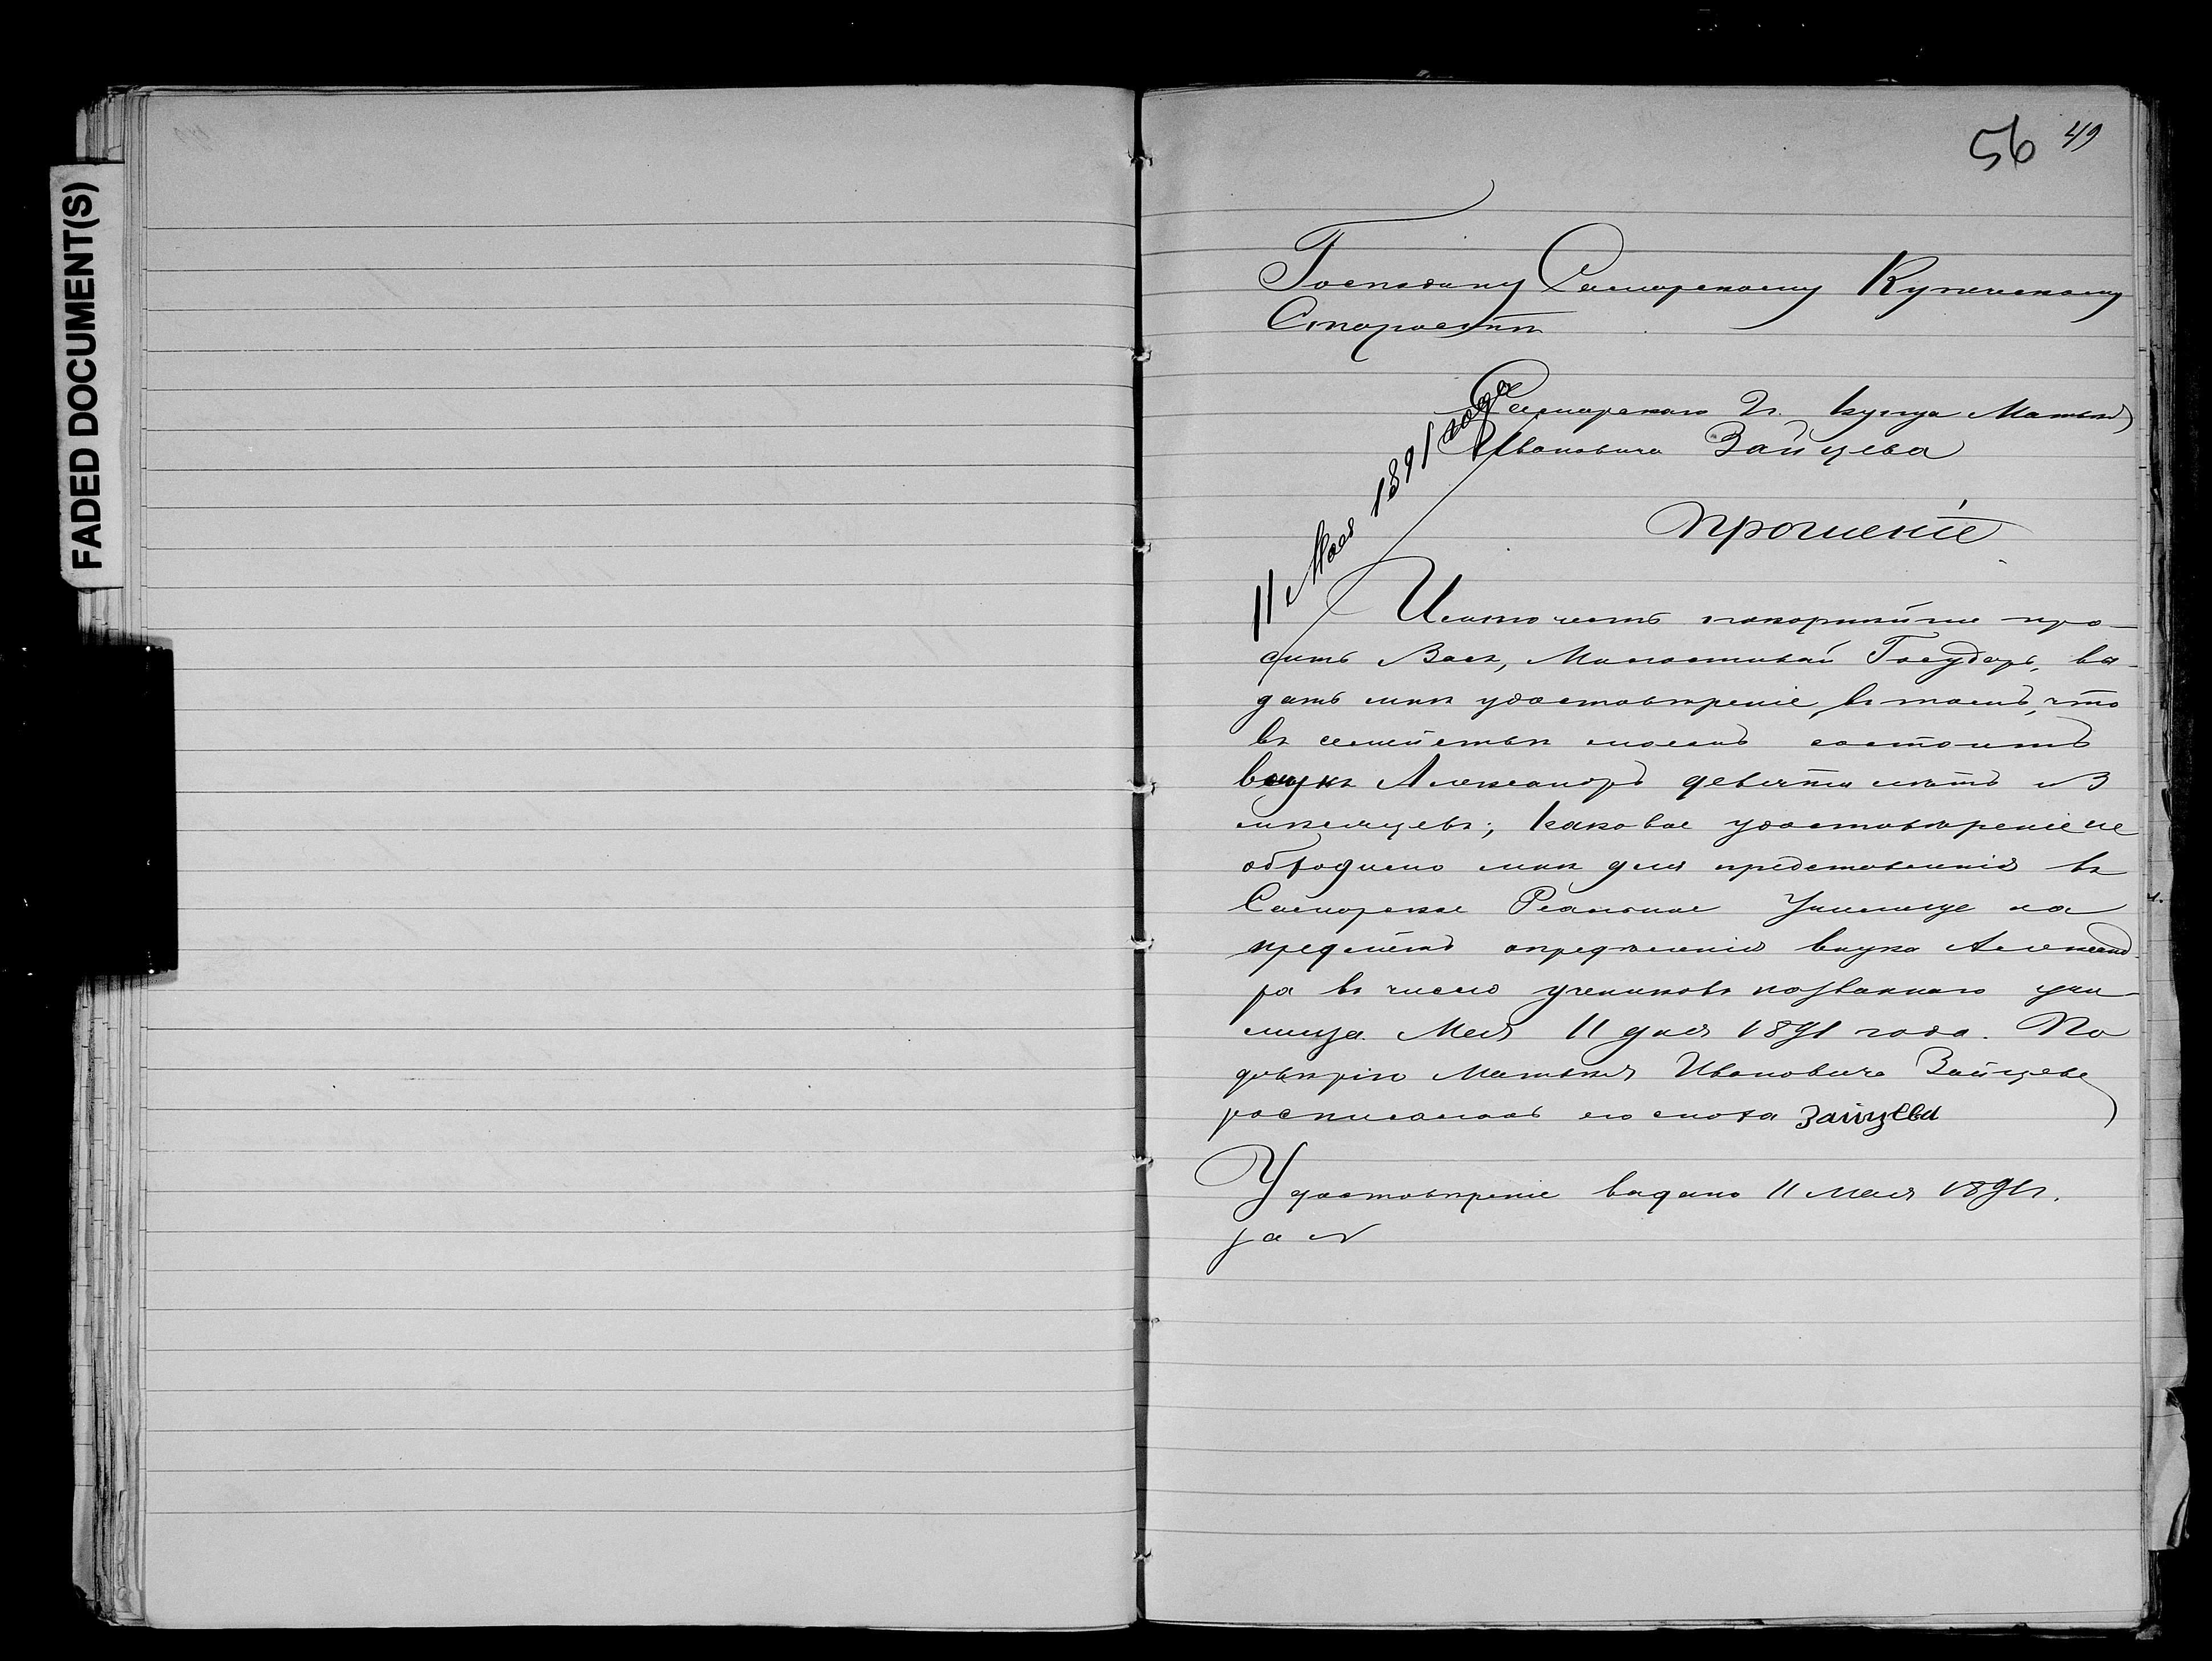 FADED DOCUMENT(S)
56 49
Господину Самарскому Купеческому
Старостѣ
11 Мая 1891 года
Самарскаго 2 г. купца Матвѣя
Ивановича Зайцева
Прошеніе
Имѣю честь покорнѣйше про-
сить Васъ, Милостивый Государь, вы-
дать мнѣ удостовѣреніе въ томъ, что
въ семействѣ моемъ состоитъ
внукъ Александръ девяти лѣтъ и 3
мѣсяцевъ; каковое удостовѣреніе не
обходимо мнѣ для представленія въ
Самарское Реальное Училище на
предметъ опредѣленія внука Александ-
ра въ число учениковъ названнаго учи-
лища. Мая 11 дня 1891 года. По
довѣрію Матвѣя Ивановича Зайцева
росписалась его сноха Зайцева
Удостовѣреніе выдано 11 мая 1891 г.
за №